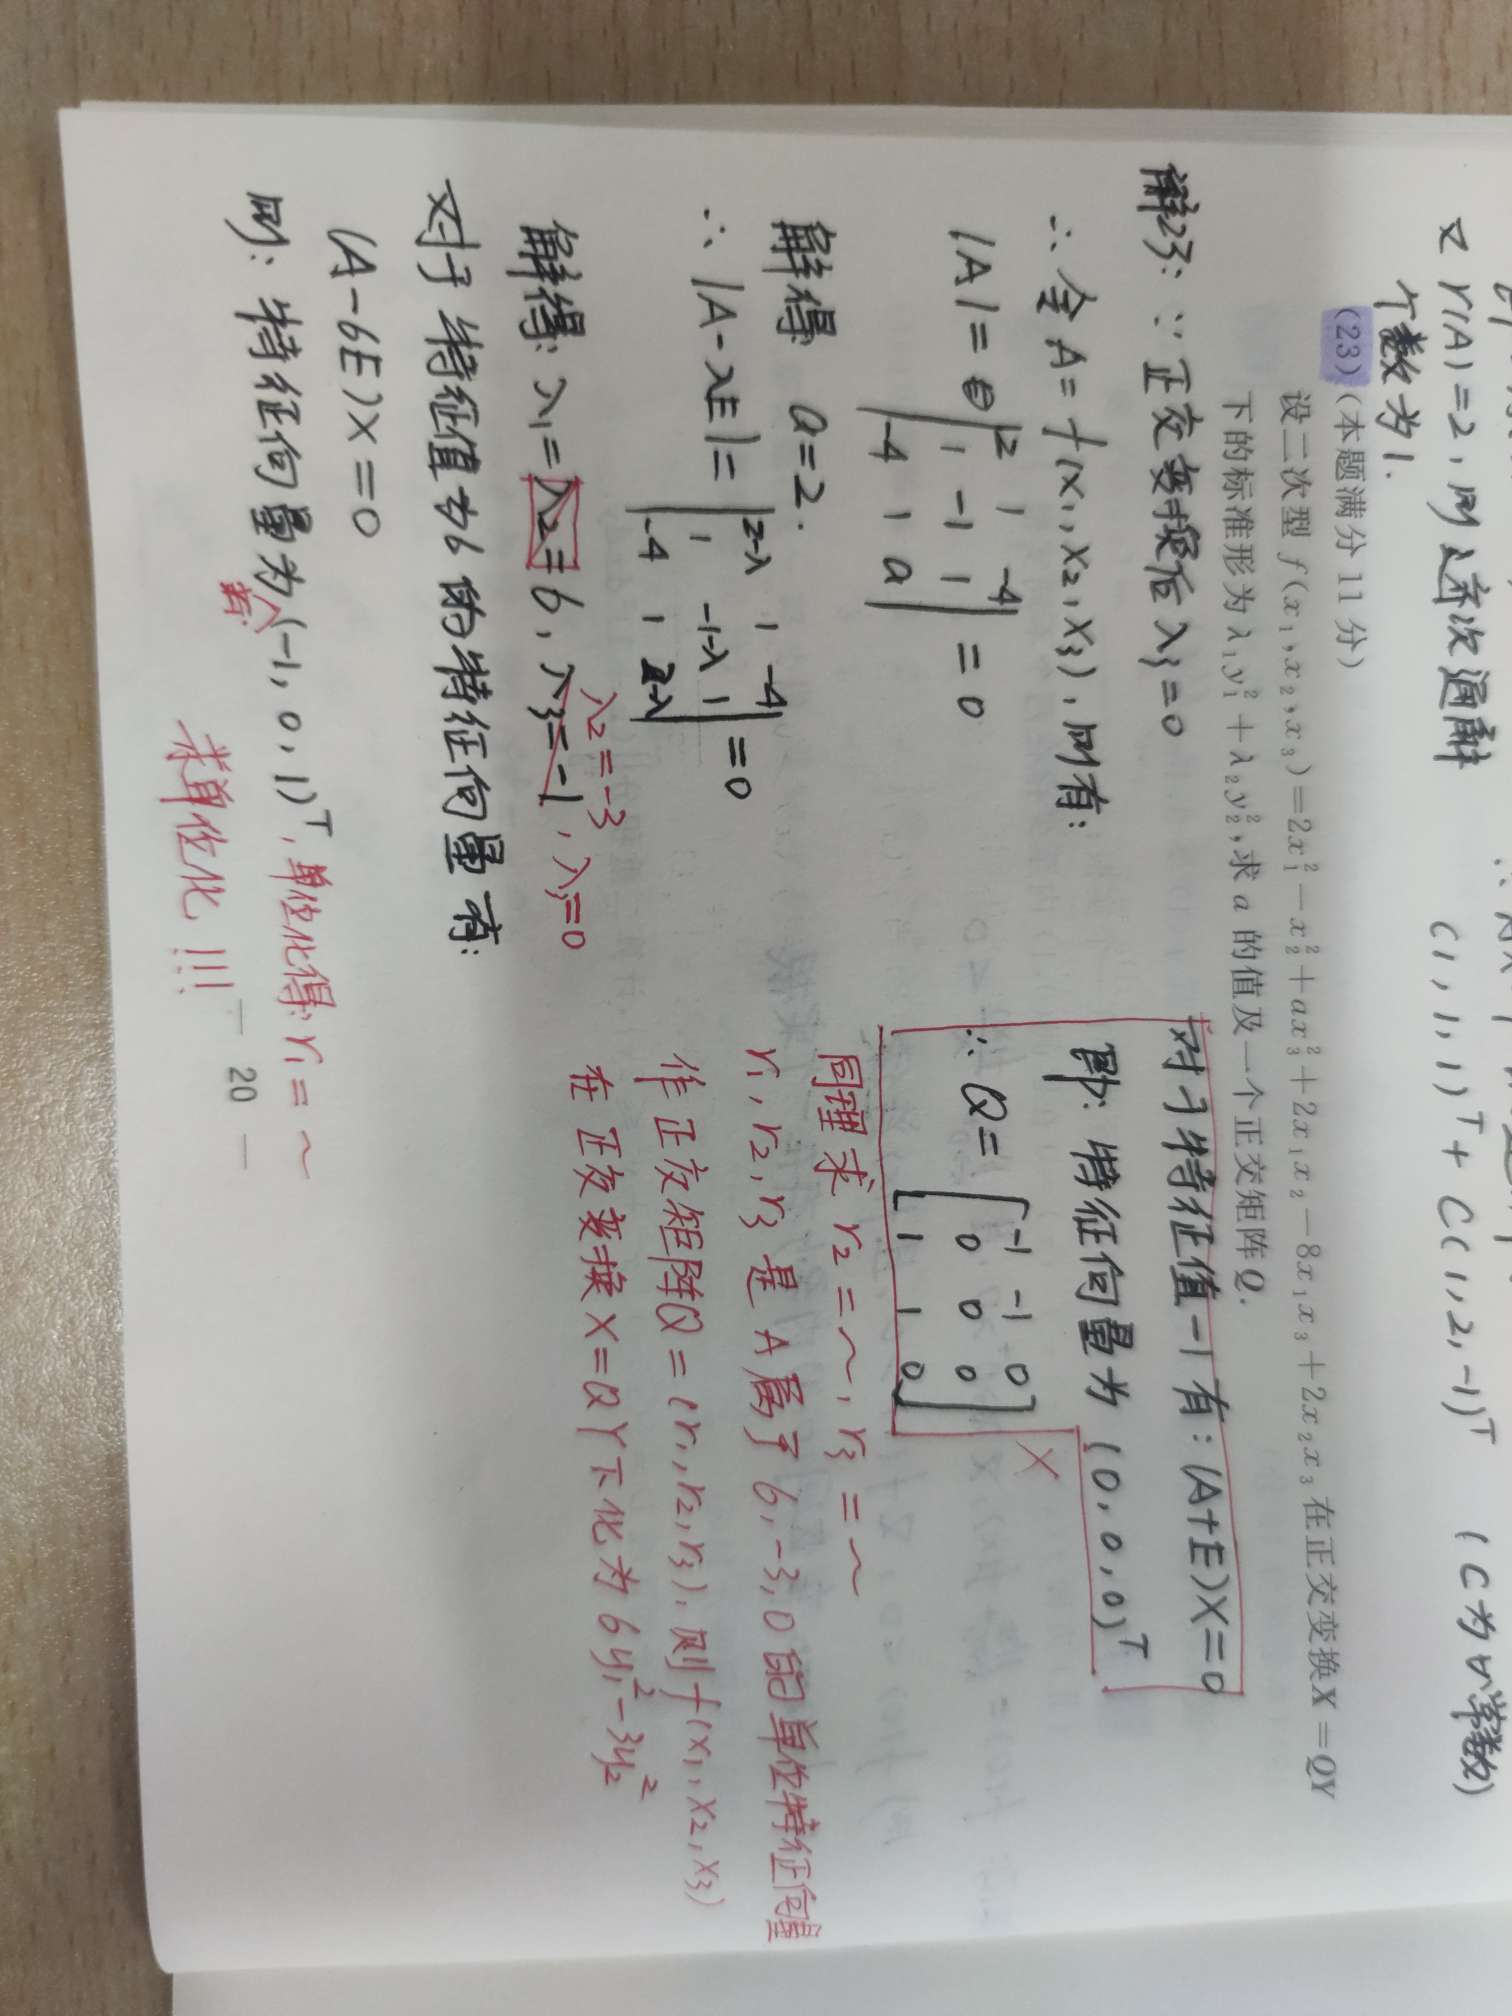 又 r(A)=2，则之齐次通解
个数为1.
C(1,1,1)ᵀ+C(1,2,-1)ᵀ (C为
(23)(本题满分11分)
设二次型 f(x₁,x₂,x₃)=2x₁²-x₂²+ax₃²+2x₁x₂-8x₁x₃+2x₂x₃在正交变换X=QY
下的标准形为λ₁y₁²+λ₂y₂²,求a的值及一个正交矩阵Q.
解23: ∵正交变换后 λ₃=0
∴令A=f(x₁,x₂,x₃), 则有:
|A|=
2 1 -4
1 -1 1
-4 1 a
=0
解得: a=2.
∴ |A-λE|=
2-λ 1 -4
1 -1-λ 1
-4 1 2-λ
=0
λ₂=-3
解得: λ₁=λ₂=6, λ₃=-1, λ₃=0
对于特征值为6的特征向量有:
(A-6E)X=0
则: 特征向量为(-1,0,1)ᵀ, 单位化得: r₁=~
求单位化!!!
对于特征值-1有: (A+E)X=0
即: 特征向量为 (0,0,0)ᵀ
∴ Q=
-1 -1 0
0 0 0
1 1 0
X
同理求 r₂=~, r₃=~
r₁,r₂,r₃是A属于6,-3,0的单位特征向量
作正交矩阵Q=(r₁,r₂,r₃), 则f(x₁,x₂,x₃)
在正交变换X=QY下化为6y₁²-3y₂²
— 20 —